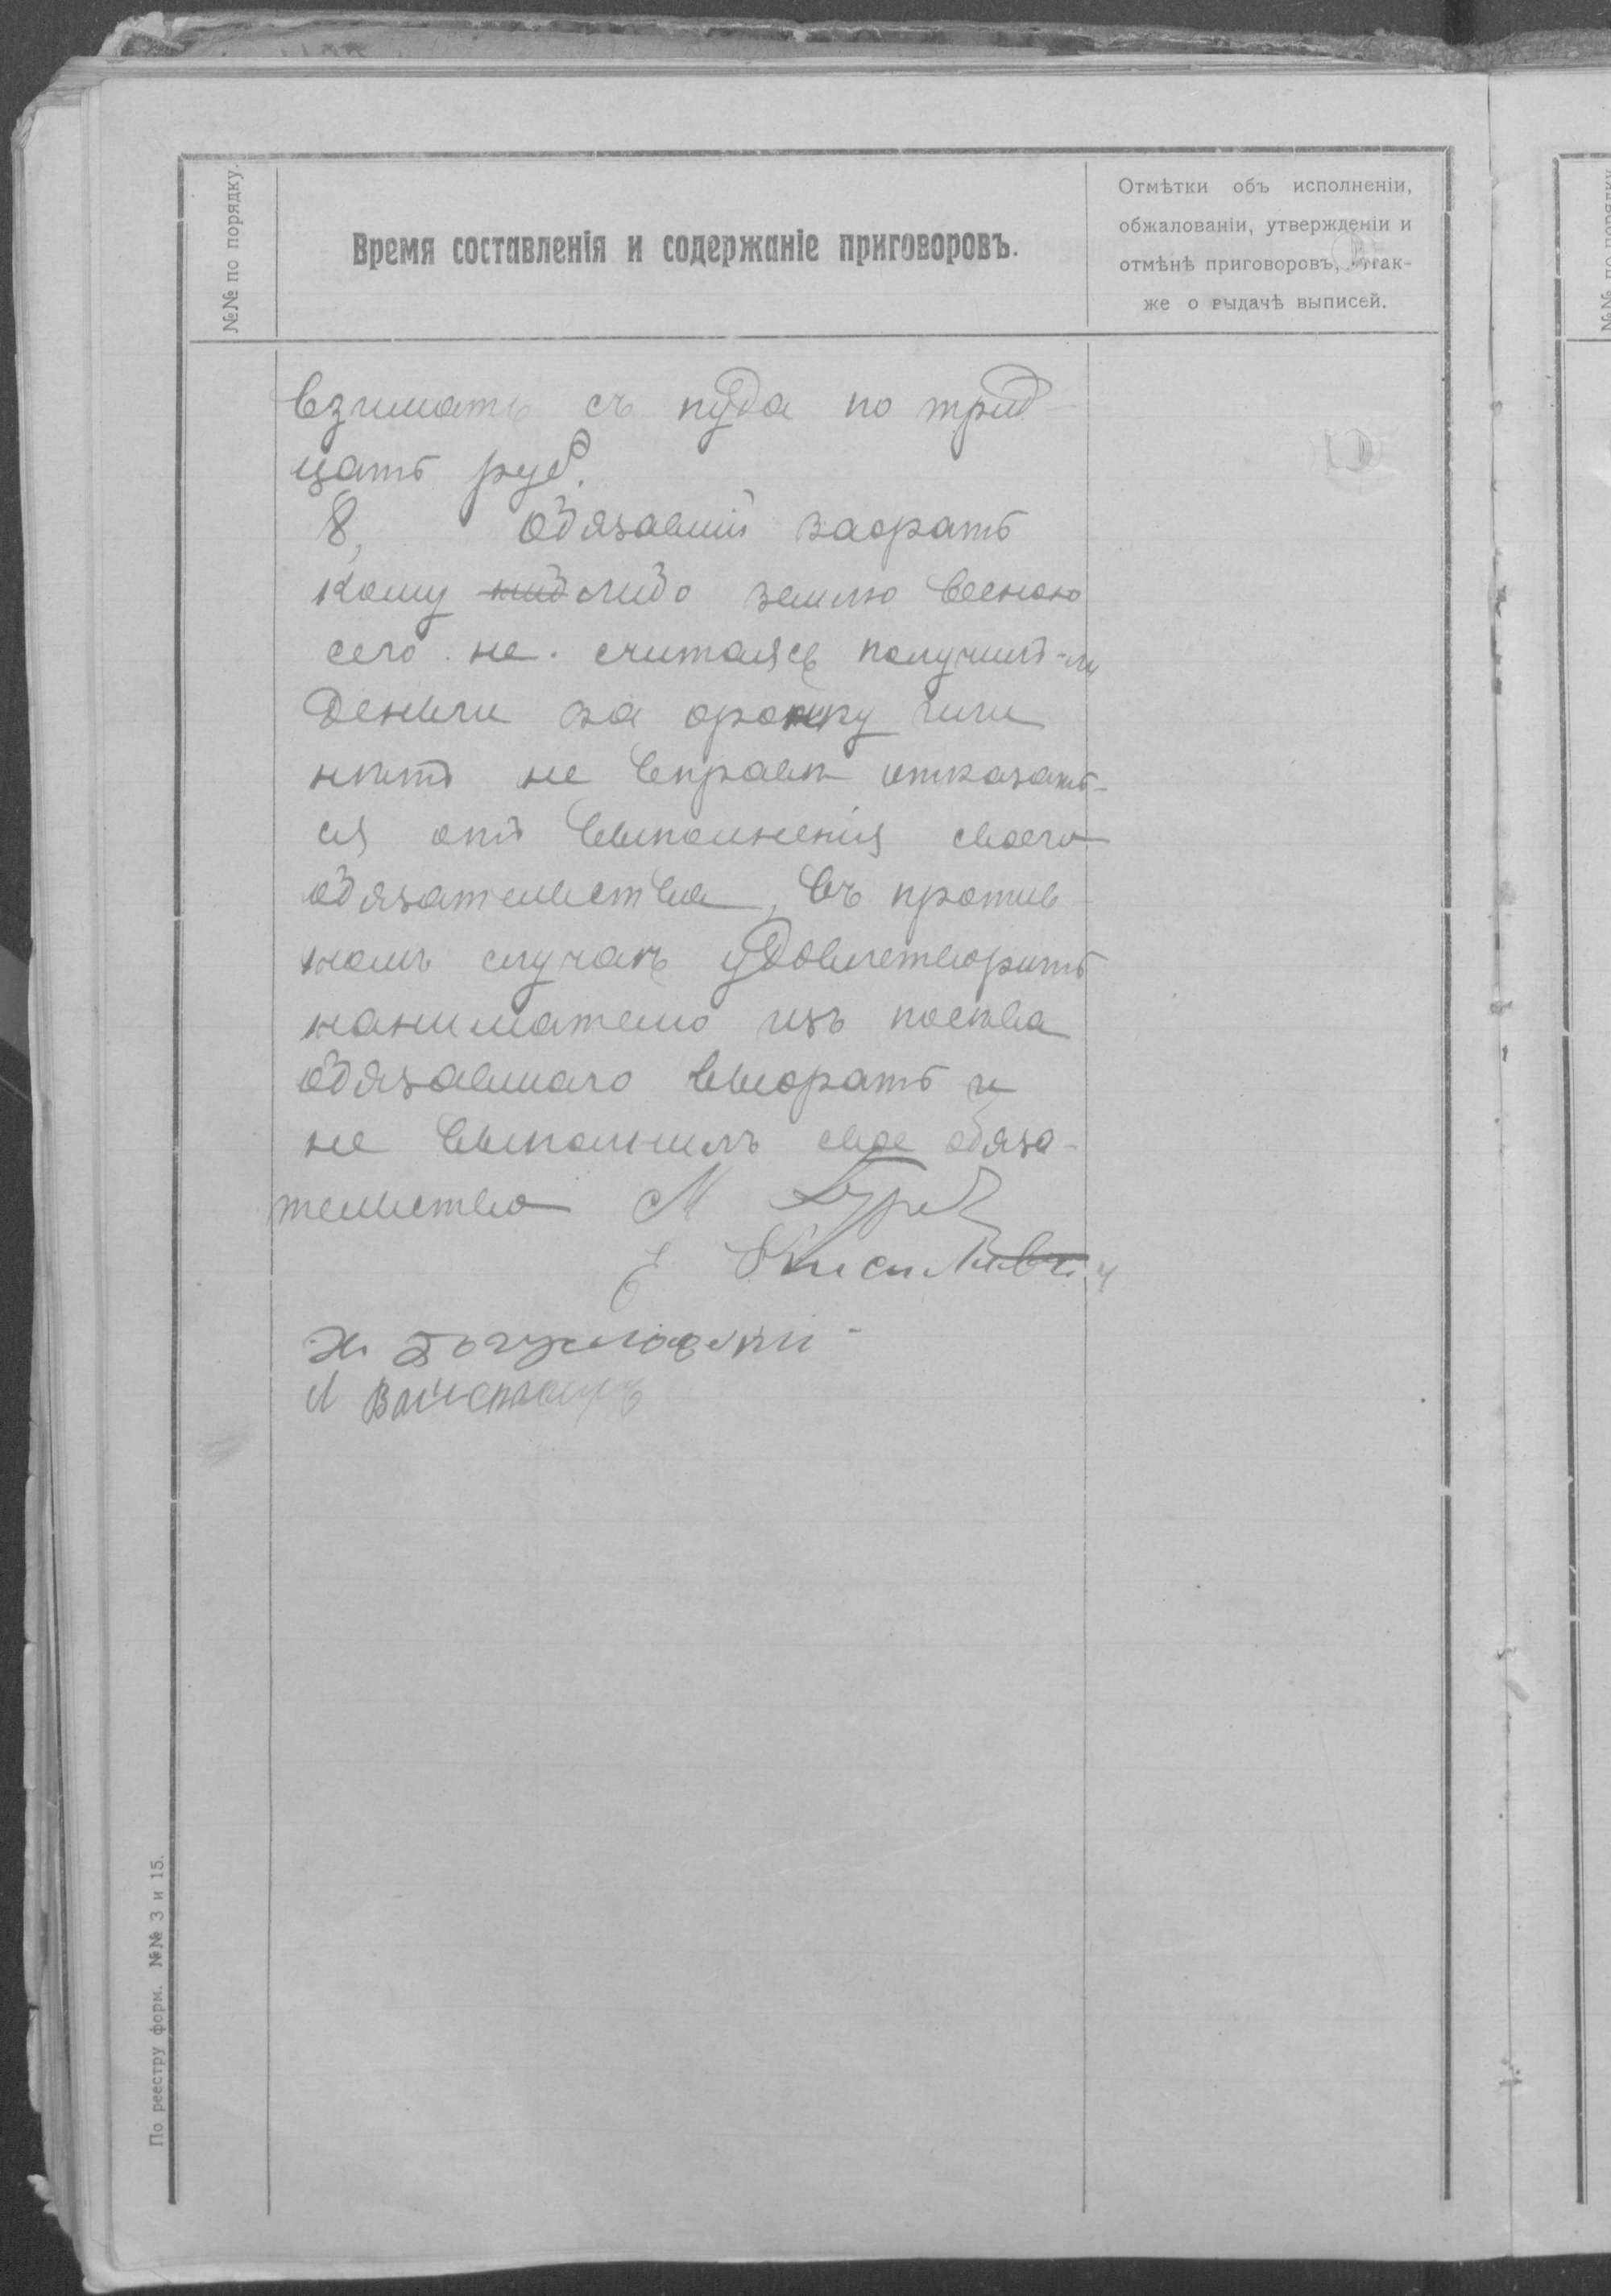 №№ по порядку.
Время составленія и содержаніе приговоровъ.
Отмѣтки объ исполненіи,
обжалованіи, утвержденіи и
отмѣнѣ приговоровъ, а так-
же о выдачѣ выписей.
Взимать съ пуда по трид-
цать руб.
8, Обязавшій заорать
кому либо землю весною
сего не считаясь получилъ-ли
деньги за оранку или
нѣтъ не вправѣ отказать-
ся отъ выполненія своего
обязательства, въ против
номъ случаѣ удовлетворить
нанимателю изъ посѣва
обязавшаго выорать и
не выполнилъ свое обяза-
тельство М
По реестру форм. №№ 3 и 15.
№№ по порядку